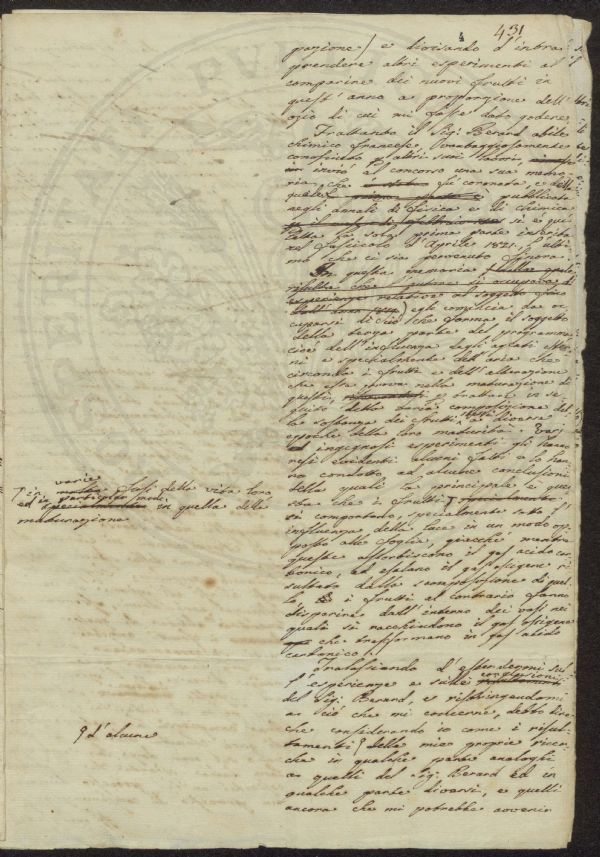 431
pazione) e divisando d'intra-
prendere altri esperimenti al
comparire dei nuovi frutti in
quest'anno a proporzione dell'
ozio di cui mi fosse dato godere
Frattanto il Sig. Berard abile
chimico francese, vantaggiosamente
conosciuto p altri suoi lavori,
inviò al concorso una sua memo-
ria, che fu coronata, e della
quale pubblicata
negli annali di fisica e di chimica
si è que
letta la sola prima parte inserita
nel fascicolo d'Aprile 1821, l'ulti
mo che ci sia pervenuto finora.
In questa memoria dalla quale
risulta che l'autore si occupava di
esperienze relative al soggetto fin
dall'anno egli comincia da oc-
cuparsi di ciò che forma il soggetto
della terza parte del programma
cioè dell'influenza degli agenti ester
ni e specialmente dell'aria che
circonda i frutti e dell'alterazione
che essa prova nella maturazione di
questi, e trattare in se
guito della varia composizione del
la sostanza dei frutti nelle diverse
epoche della loro maturità. Varj
ed ingegnosi esperimenti gli hanno
resi evidenti alcuni fatti e lo han
no condotto ad alcune conclusioni
della quali la principale è que
sta che i frutti specialmente
si comportano, specialmente sotto l'
influenza della luce in un modo op
posto alle foglie, giacchè mentre
queste assorbiscono il gas acido car
bonico, ed esalano il gas ossigene ri
sultato della scomposizione di quel
lo, i frutti al contrario fanno
disparire dall'interno dei vasi nei
quali si racchiudono il gas ossigene
che trasformano in gas acido
carbonico.
Tralasciando d'estendermi sul
l'esperienze e sulle conclusioni
del Sig. Berard, e ristringendomi
a ciò che mi concerne, debbo dire
che considerando io come i risul
tamenti della mie proprie ricer
che in qualche parte analoghi
a quelli del Sig. Berard ed in
qualche parte diversi, e quelli
ancora che mi potrebbe avvenir
varie
in molte fasi della vita loro
ed in particolar modo
specialmente in quella della
maturazione
d'alcune